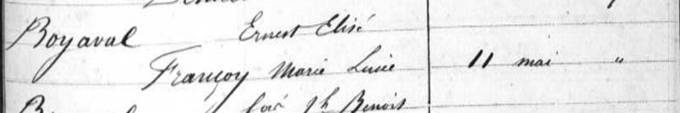 Boyaval Ernest Elisé
Françoy Marie Lucie 11 mai "
José Jh Benoit